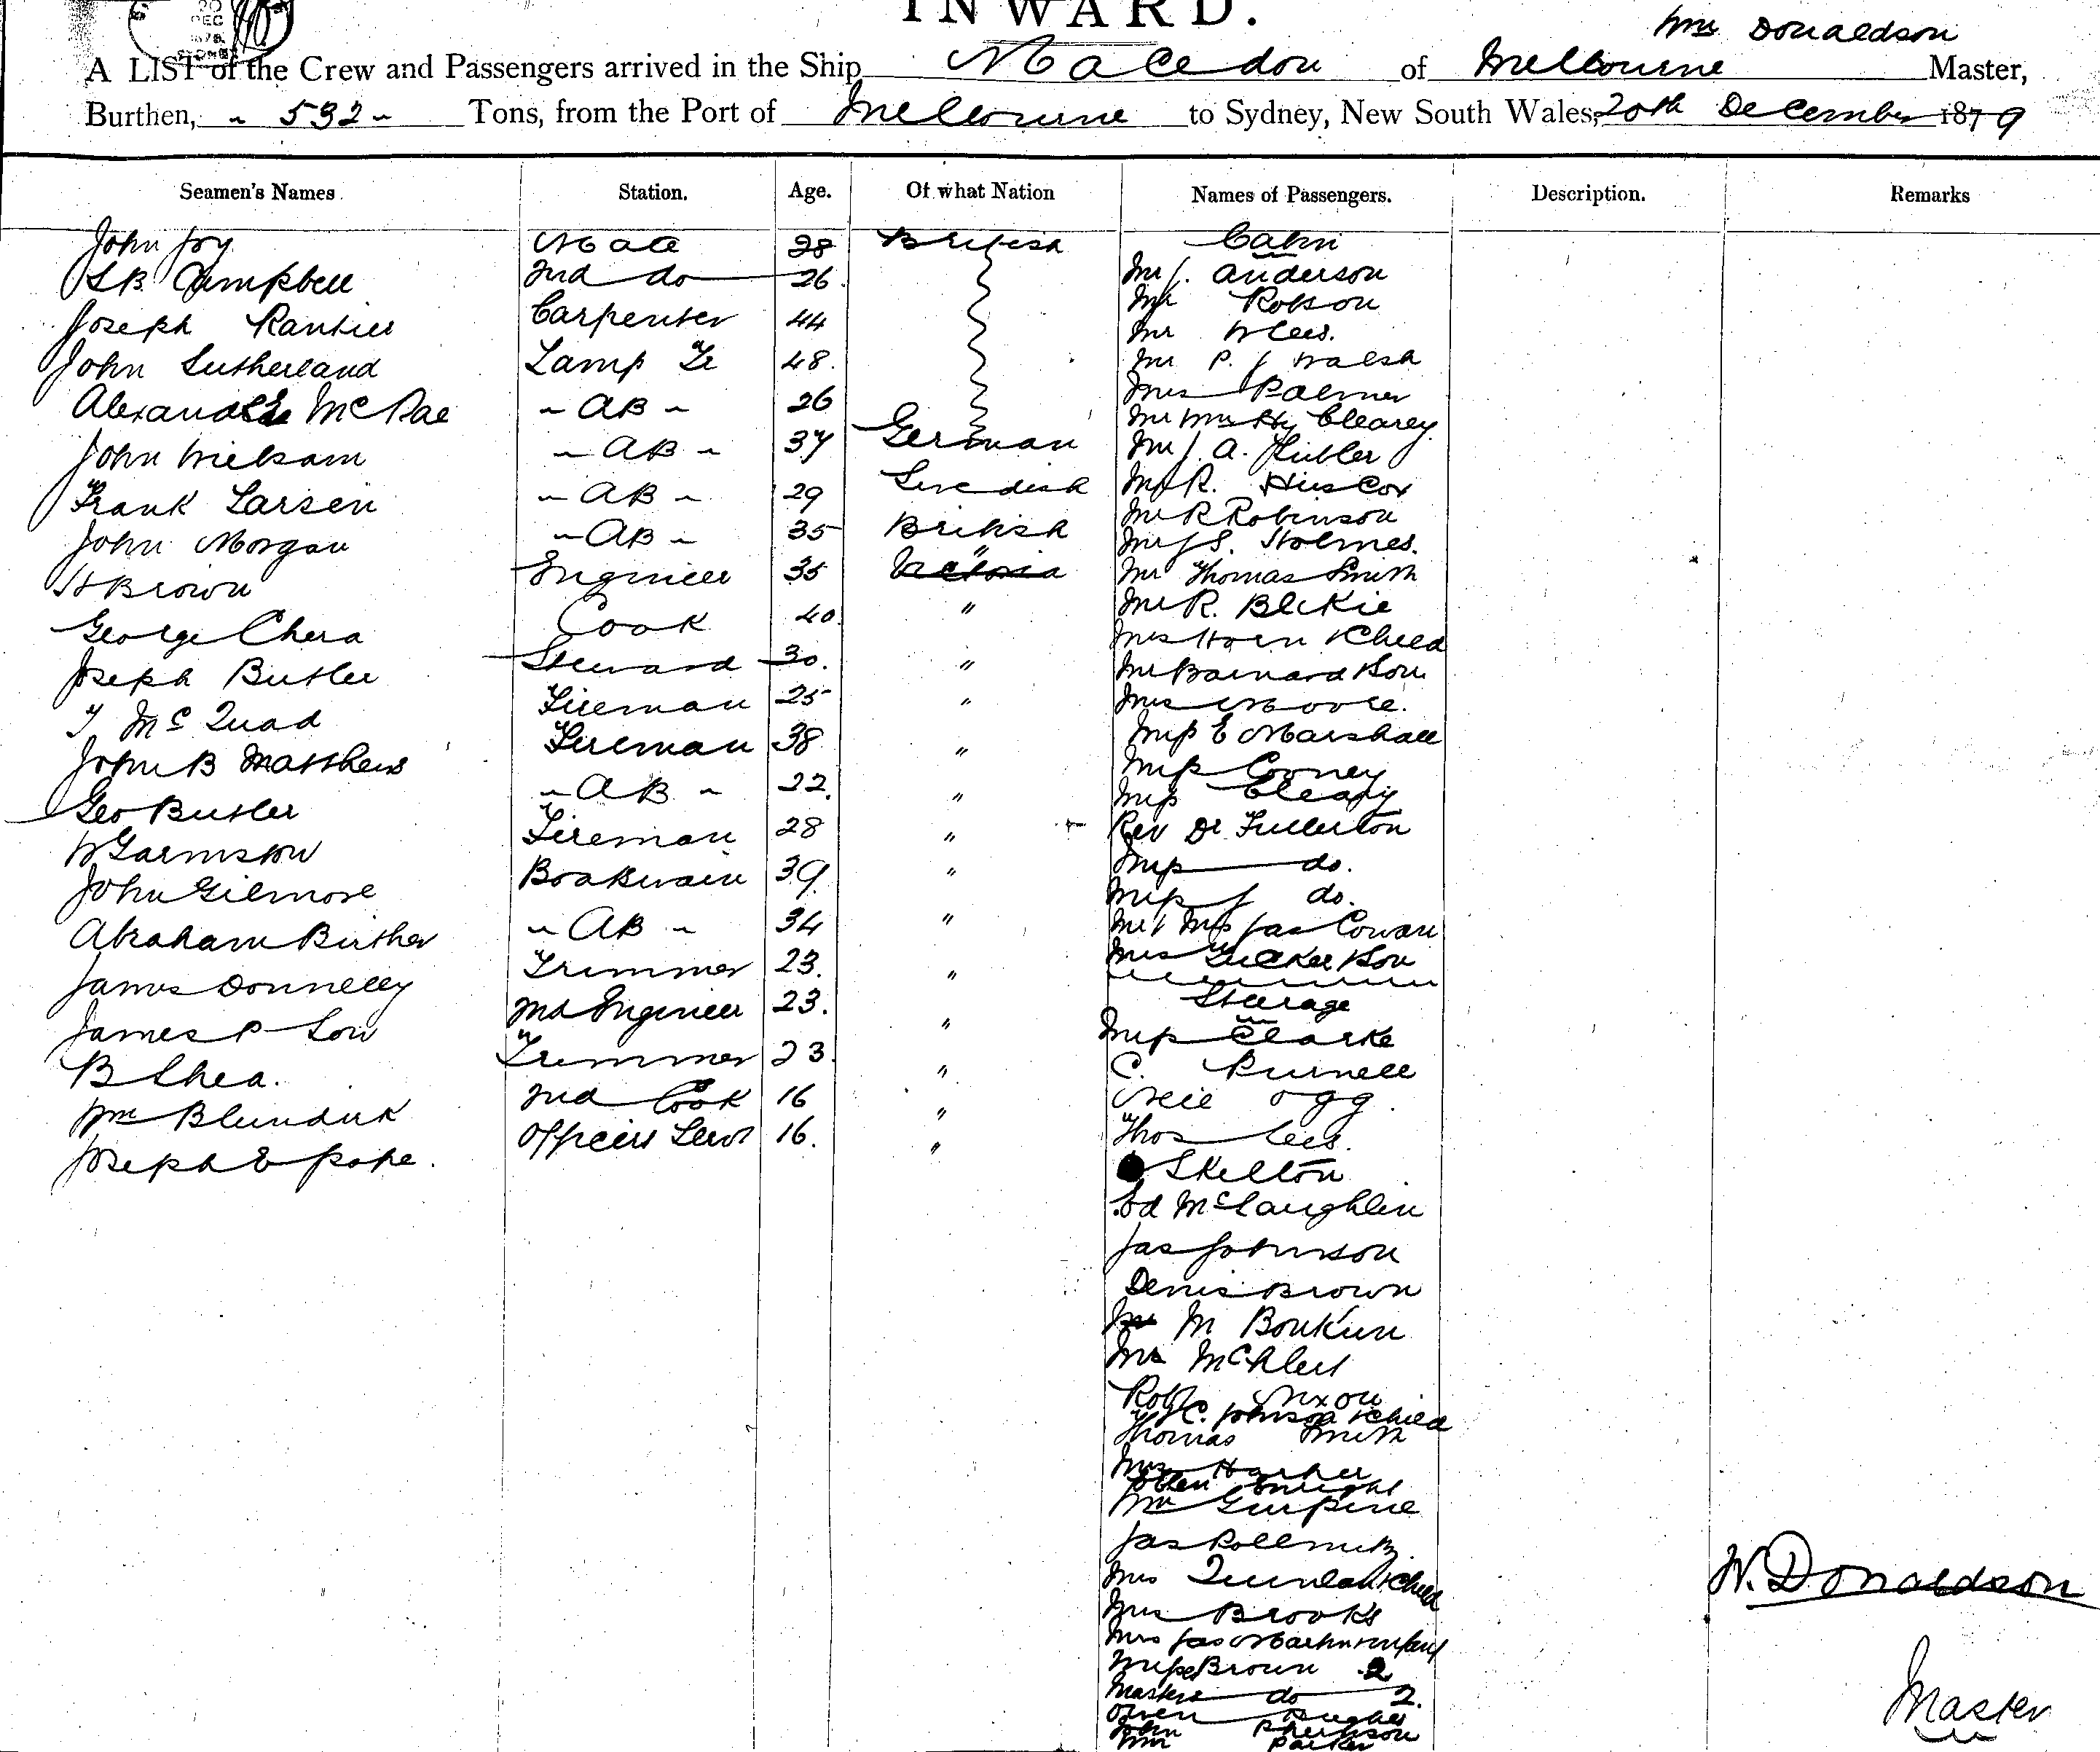 20
DEC
SYDNEY
INWARD.
Wm Donaldson
A LIST of the Crew and Passengers arrived in the Ship Macedon of Melbourne Master,
Burthen, 532 Tons, from the Port of Melbourne to Sydney, New South Wales, 20th December 1879
Seamen's Names Station. Age. Of what Nation Names of Passengers. Description. Remarks
John Joy Mate 28 British Cabin
Campbell 2nd do 26 Mr J. Anderson
Joseph Carpenter 44 Mr Robson
John Sutherland Lamp Tr 48. Mr Lees.
Alexander McRae AB 26 Mr P. J Walsh
Mrs Palmer
John AB 37 German Mr Mrs Hy Clearey
Mr J. A. Hubler
Frank Larsen AB 29 Swedish Mr R. Hiscox
John Morgan AB 35 British Mr R Robinson
Mr J S. Holmes.
H Brown Engineer 35 Victoria " Mr Thomas Smith
George Cook 40 " Mr R. Blckie
Mrs Horn & Child
Joseph Butler Steward 30. " Mr Barnard & Son
T McQuad Fireman 25 " Mrs Moore.
John B Matthews Fireman 38 " Miss E Marshall
Miss Cooney
Geo Butler AB 22. " Miss Cleary
W Garmston Fireman 28 " Rev Dr Fullerton
John Gilmore Boatswain 39 " Miss do.
Miss J do.
Abraham AB 34 " Mr & Mrs Jas Cowan
James Donnelly Trimmer 23. " Mrs Tucker & Son
Steerage
James P Low 2nd Engineer 23. " Miss Clarke
B Shea. Trimmer 23. " C. Purnell
Wm 2nd Cook 16 " Neil Ogg.
Joseph E Pope. Officers Servt 16. " Thos Lees.
Skelton
Ed McLaughlin
Jas Johnson
Denis Brown
M
Mrs
Robt Nixon
C. Johnson & Child
Thomas Smith
Mrs Harker
Ellen Enright
Wm
Jas
Mrs Quinlan & Child
Mrs Brooks
Mrs Jas Martin & Infant
Misses Brown 2
Masters do 2.
Owen Hughes
John
Wm Parker
W. Donaldson
Master